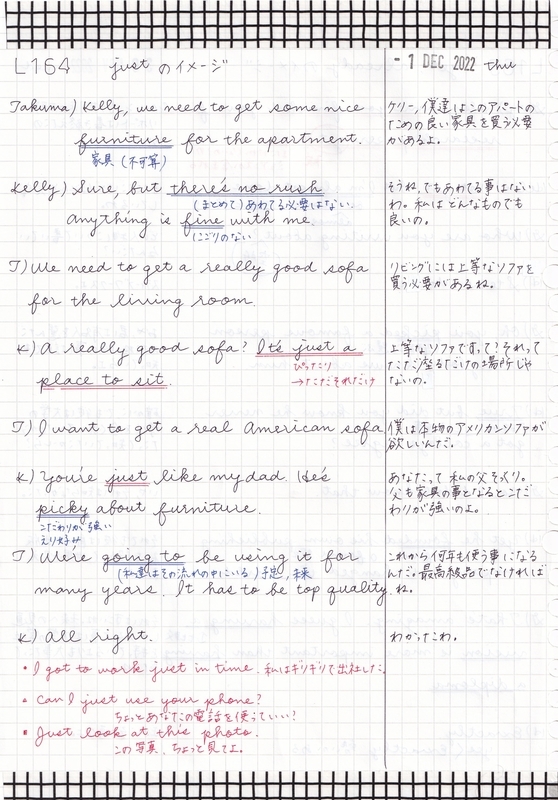 L164 justのイメージ
- 1 DEC 2022 thu
Takuma) Kelly, we need to get some nice
furniture for the apartment.
家具(不可算)
ケリー,僕達はこのアパートの
ための良い家具を買う必要
があるよ。
Kelly) Sure, but there's no rush
(まとめて)あわてる必要はない
anything is fine with me.
にごりのない
そうね,でもあわてる事はない
わ。私はどんなものでも
良いの。
T) We need to get a really good sofa
for the living room.
リビングには上等なソファを
買う必要があるね。
K) A really good sofa? It's just a
ぴったり
place to sit.
→ただそれだけ
上等なソファですって?それって
ただ座るだけの場所じゃ
ないの。
T) I want to get a real American sofa
僕は本物のアメリカンソファが
欲しいんだ。
K) You're just like my dad. He's
picky about furniture.
こだわりが強い
えり好み
あなたって私の父そっくり。
父も家具の事となるとこだ
わりが強いのよ。
T) We're going to be using it for
(私達はその流れの中にいる)予定,未来
many years. It has to be top quality.
これから何年も使う事になる
んだ。最高級品でなければ
ね。
K) All right.
わかったわ。
• I got to work just in time. 私はギリギリで出社した。
• Can I just use your phone?
ちょっとあなたの電話を使っていい?
• Just look at this photo.
この写真、ちょっと見てよ。